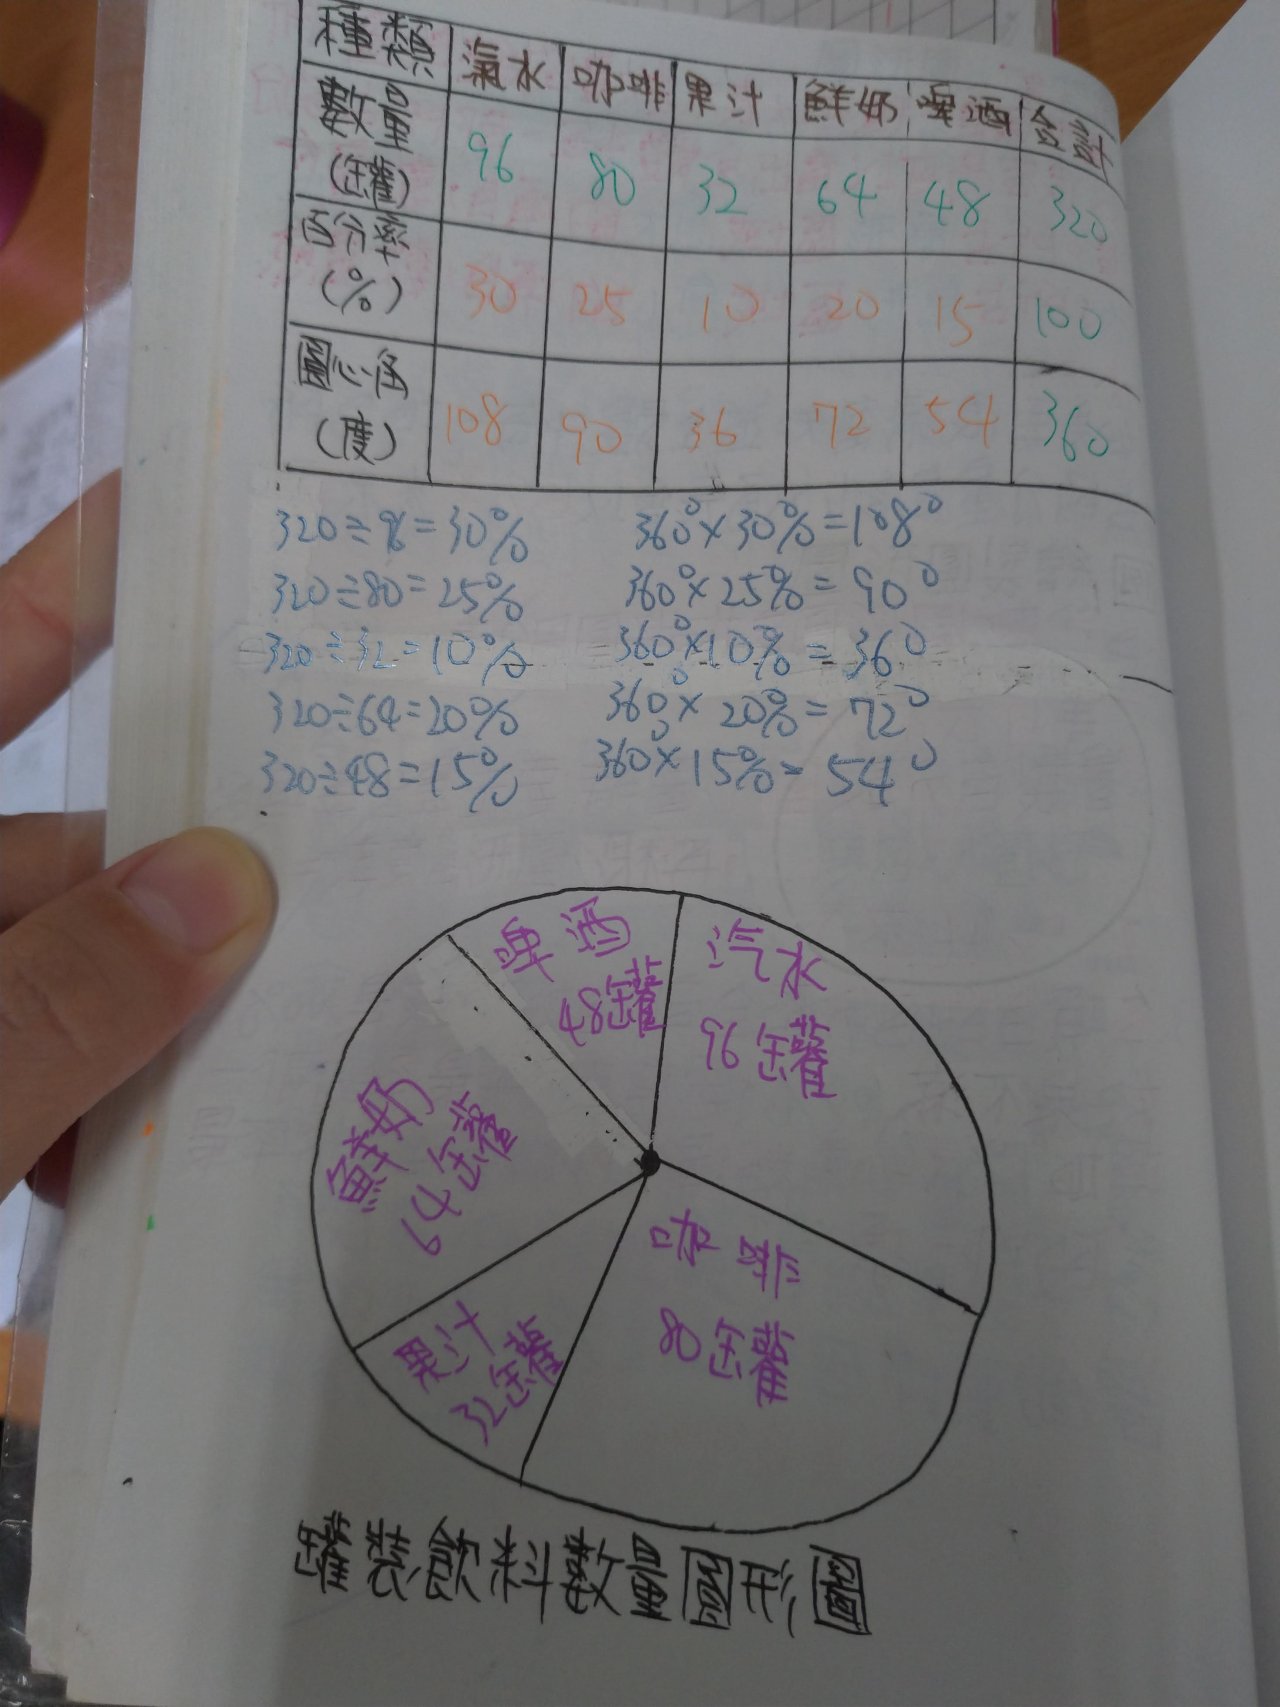 種類 汽水 咖啡 果汁 鮮奶 啤酒 合計
數量(罐) 96 80 32 64 48 320
百分率(%) 30 25 10 20 15 100
圓心角(度) 108 90 36 72 54 360
320÷96=30% 360°×30%=108°
320÷80=25% 360°×25%=90°
320÷32=10% 360°×10%=36°
320÷64=20% 360°×20%=72°
320÷48=15% 360°×15%=54°
啤酒
48罐
汽水
96罐
鮮奶
64罐
咖啡
80罐
果汁
32罐
罐裝飲料數量圓形圖